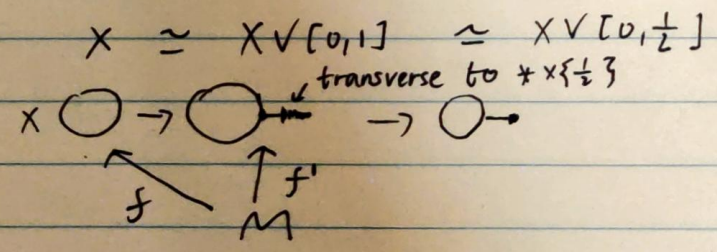 X ≃ X∨[0,1] ≃ X∨[0,½]
transverse to *×{½}
X → →
f f'
M